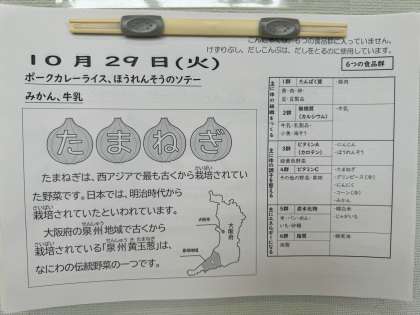 こんだては、6つの食品群に入っていません。
けずりぶし、だしこんぶは、だしをとるのに使用しています。
10月29日(火)
6つの食品群
ポークカレーライス、ほうれんそうのソテー
みかん、牛乳
たまねぎ
たまねぎは、西アジアで最も古くから栽培されてい
さいばい
た野菜です。日本では、明治時代から
さいばい
栽培されていたといわれています。
大阪府の泉州地域で古くから
せんしゅう
さいばい
せんしゅう き たまねぎ
栽培されている「泉州黄玉葱」は、
なにわの伝統野菜の一つです。
大阪府
1群 たんぱく質
魚・肉・卵・
豆・豆製品
2群 無機質
(カルシウム)
牛乳・乳製品・
小魚・海そう
・牛乳
3群 ビタミンA
(カロテン)
緑黄色野菜
・にんじん
・ほうれんそう
4群 ビタミンC
その他の野菜・果物
・たまねぎ
・グリンピース(冷)
・にんにく
・コーン(冷)
・みかん
5群 炭水化物
米・パン・めん・
いも・砂糖
・精白米
・じゃがいも
6群 脂質
油脂